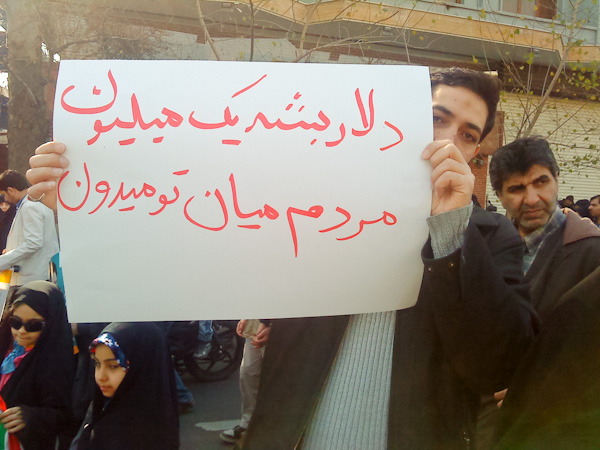 دلار بشه یک میلیون
مردم میان تو میدون